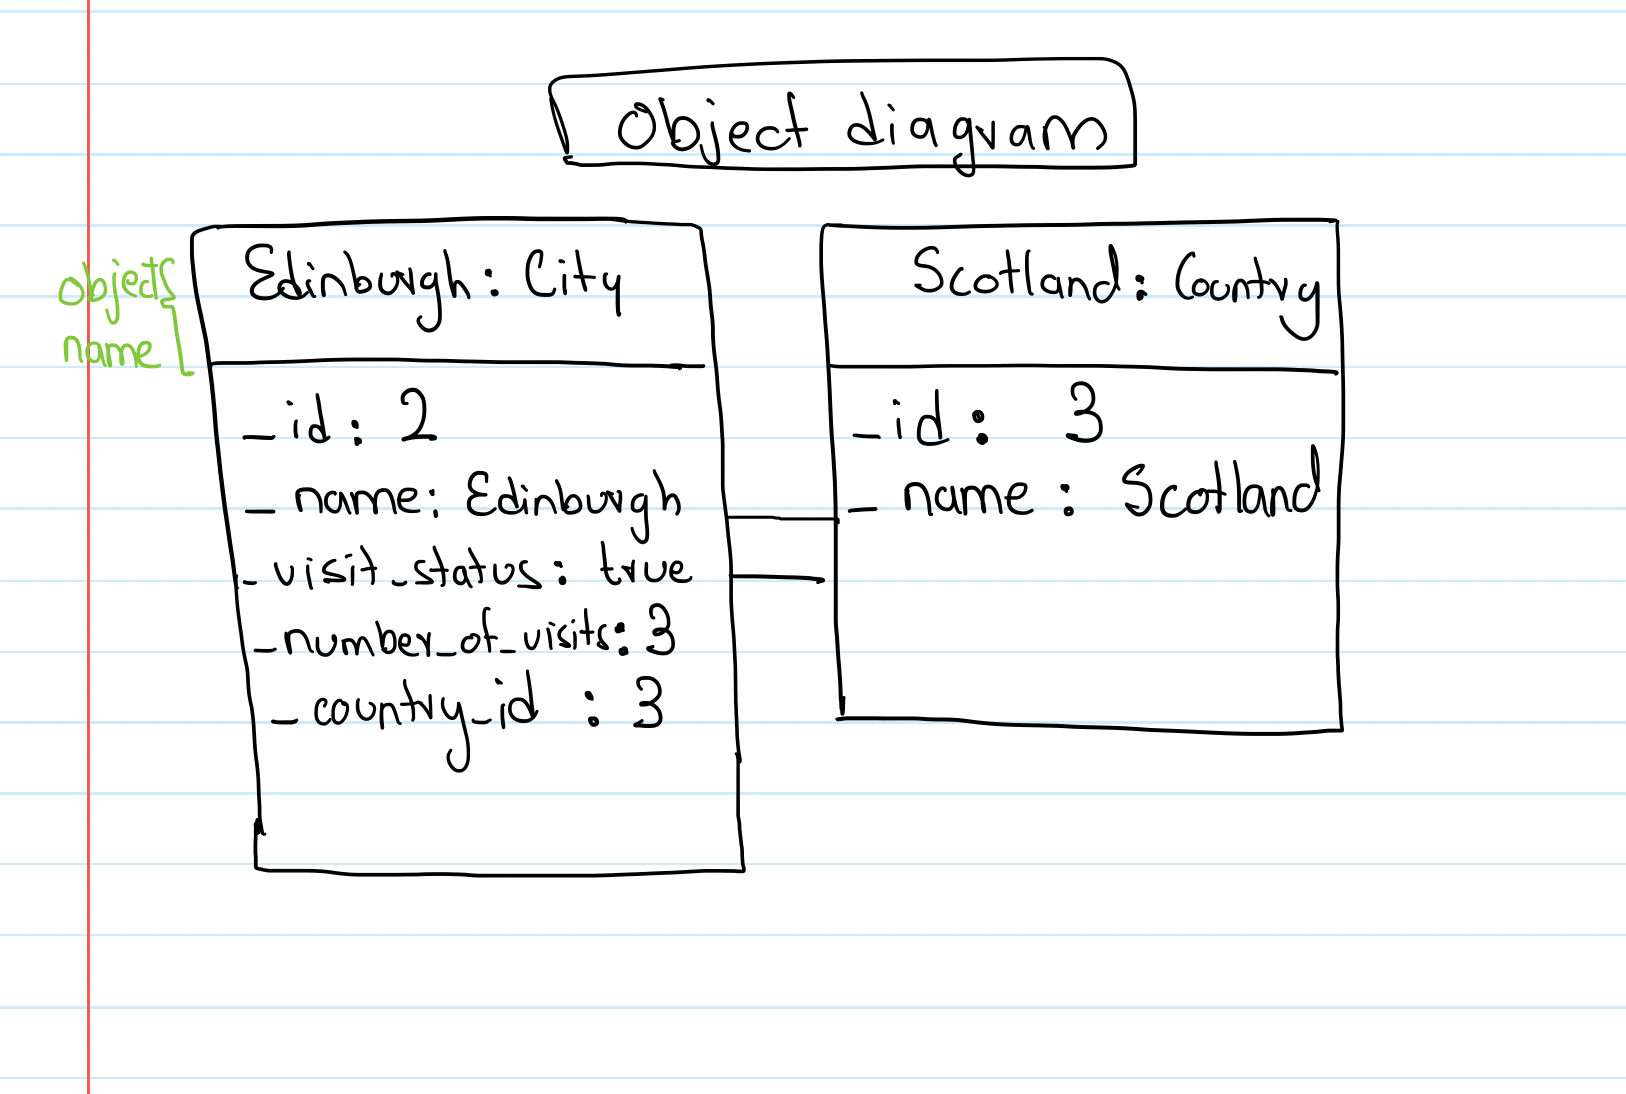 Object diagram
object
name
Edinburgh: City
_ id: 2
_ name: Edinburgh
- visit_status: true
_ number_of_visits: 3
_ country_id : 3
Scotland: Country
_ id: 3
_ name : Scotland